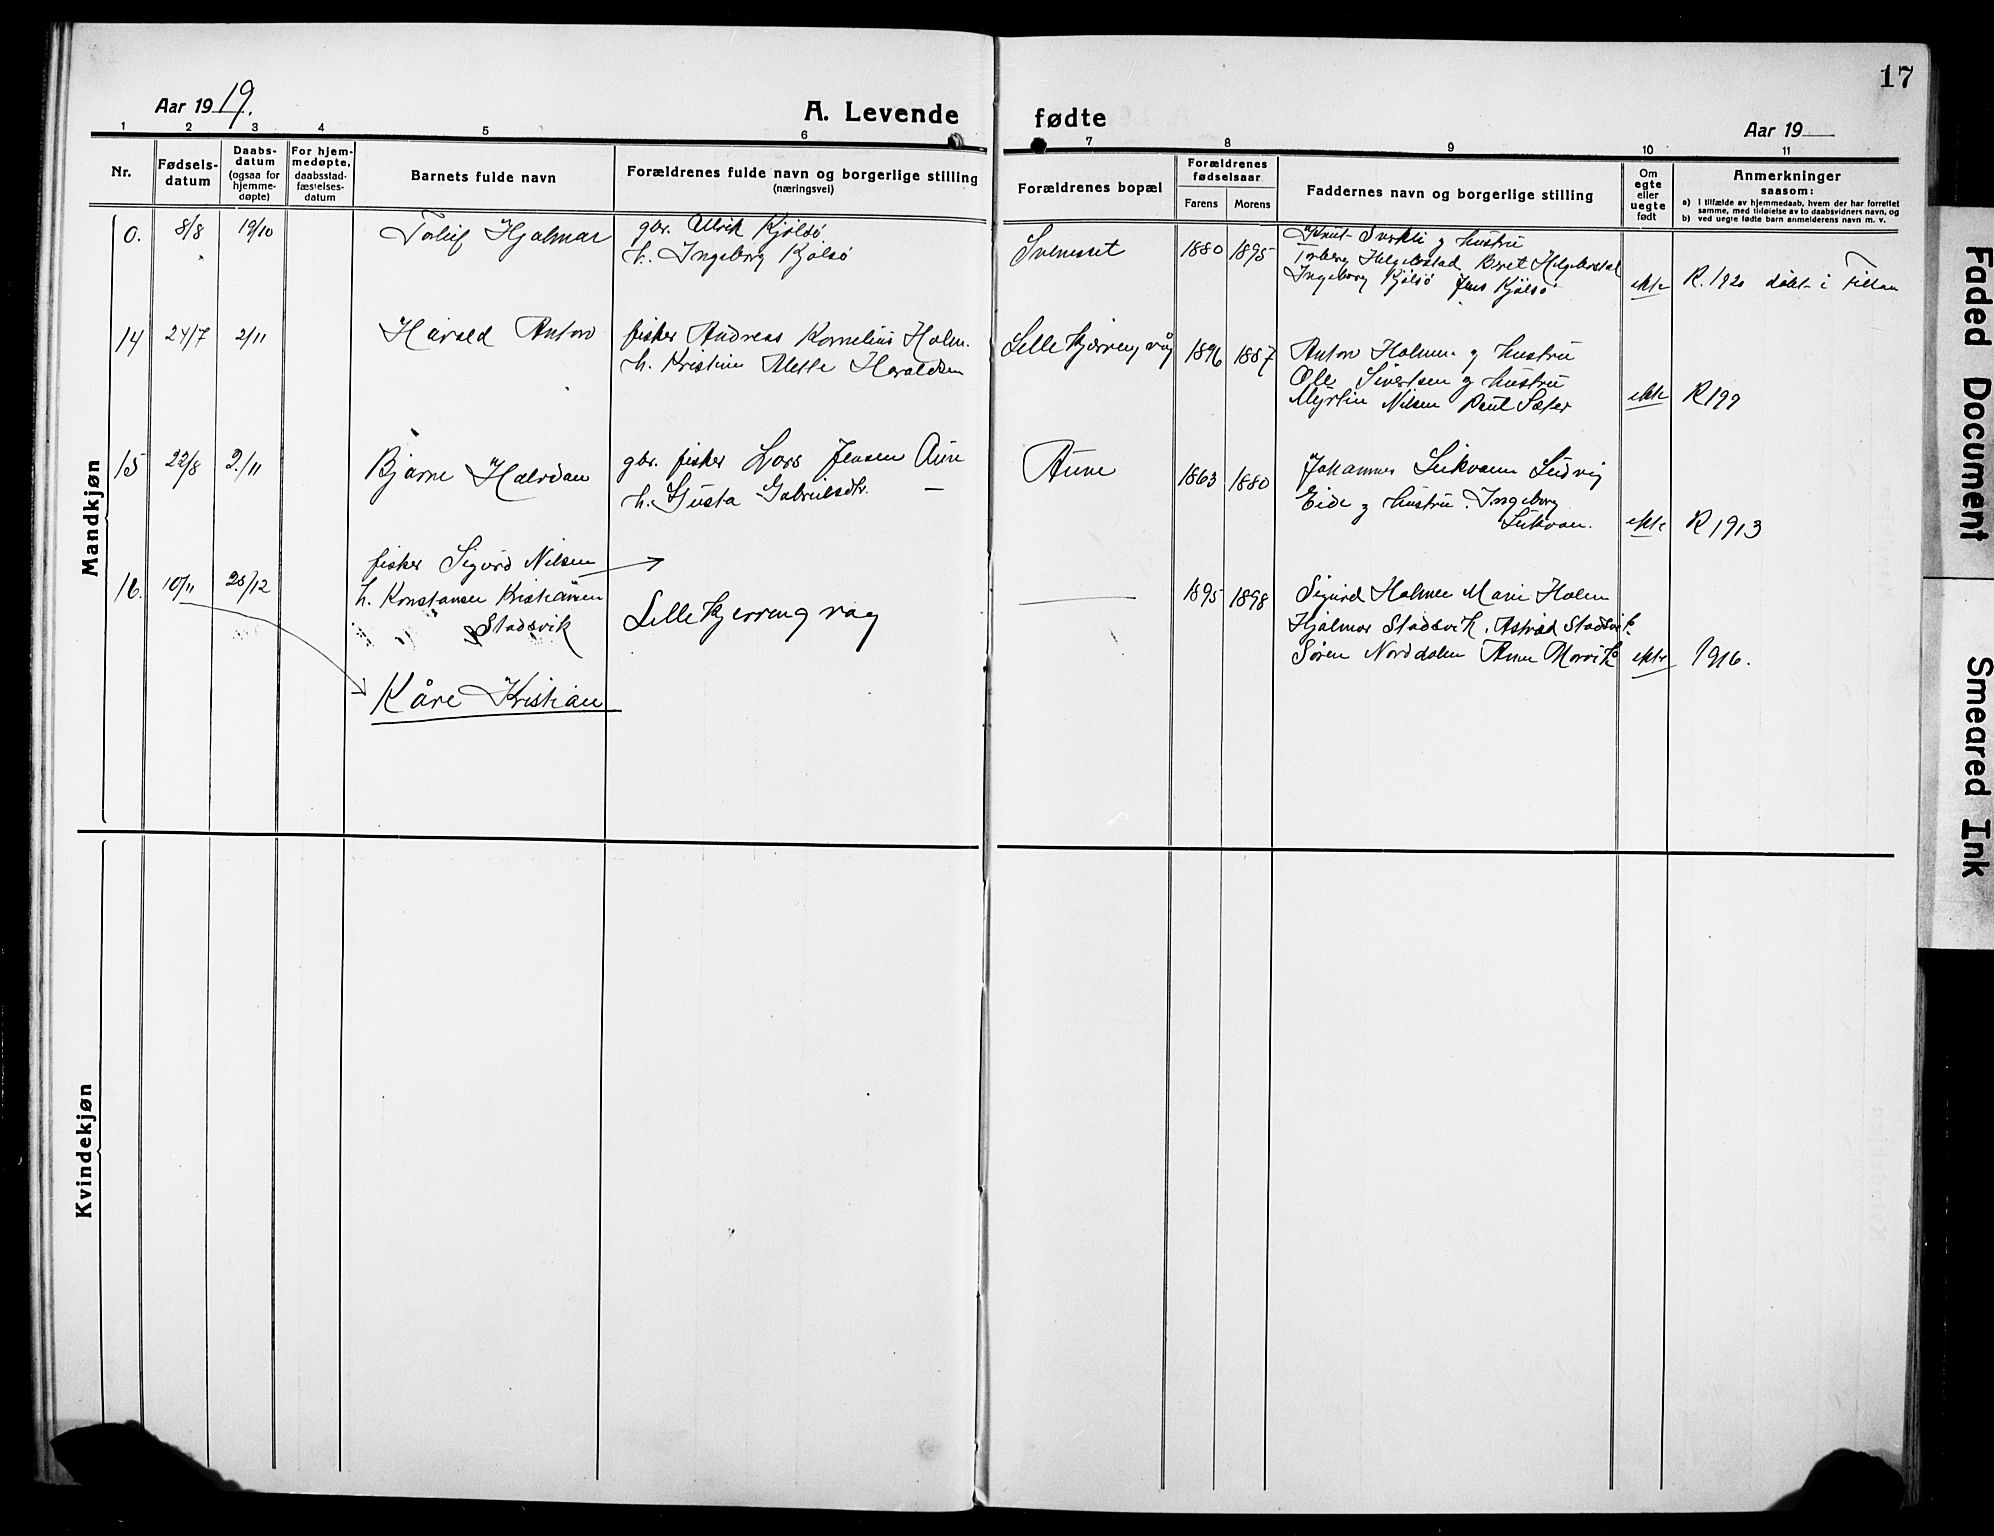 17
Aar 1919.
A. Levende fødte
Aar 19
1 2 3 4 5 6 7 8 9 10 11
Nr.
Fødsels-
datum
Daabs-
datum
(ogsaa for
hjemme-
døpte)
For hjem-
medøpte,
daabsstad-
fæstelses-
datum
Barnets fulde navn
Forældrenes fulde navn og borgerlige stilling
(næringsvei)
Forældrenes bopæl
Forældrenes
fødselsaar
Farens Morens
Faddernes navn og borgerlige stilling
Om
egte
eller
uegte
født
Anmerkninger
saasom:
a) I tilfælde av hjemmedaab, hvem der har forrettet
samme, med tilføielse av to daabsvidners navn, og
b) ved uegte fødte barn anmelderens navn m. v.
Mandkjøn
0. 8/8 19/10 Torlif Hjalmar
gbr. Ulrik Kjølsø
h. Ingeborg Kjølsø
1880 1895
Knut og hustru
Torberg Helgebostad Beret Helgebostad
Ingeborg Kjølsø Jens Kjølsø
ekte R. 1920 døbt i Fillan
14 24/7 2/11 Harald Anton
fisker Andreas Kornelius Holm.
h. Kristine Alette Haraldsen
Lille Kjerringvåg 1896 1887
Anton Holmen og hustru
Ole Sivertsen og hustru
Nilsen Paul Sæter
ekte R 199
15 22/8 2/11 Bjarne Halvdan
gbr. fisker Lars Jensen Aune
h. Gusta Gabrielsdtr. —
Aune 1863 1880
Johannes Leikvam Ludvig
Eide og hustru. Ingeborg
Leikvam.
ekte R 1913
fisker Sigurd Nilsen
16. 10/11 28/12 h. Konstanse Kristiansen
Stadsvik
Lille Kjerringvag
1895 1898
Sigurd Holmen Marie Holm
Hjalmar Stadsvik. Astrid Stadsvik.
Søren Norddalen Anne Morvik
ekte 1916.
Kåre Kristian
Kvindekjøn
Faded Document
Smeared Ink